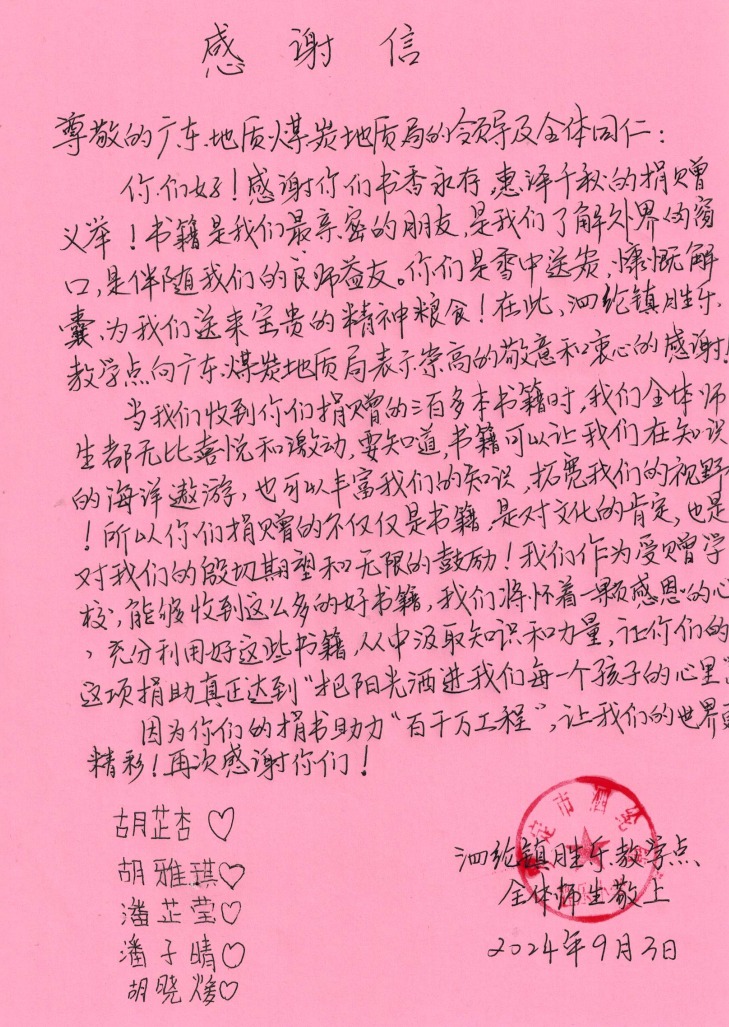 感谢信
尊敬的广东地质煤炭地质局的领导及全体同仁：
你们好！感谢你们书香永存，惠泽千秋的捐赠
义举！书籍是我们最亲密的朋友，是我们了解外界的窗
口，是伴随我们的良师益友。你们是雪中送炭，慷慨解
囊，为我们送来宝贵的精神粮食！在此，泗纶镇胜乐
教学点向广东煤炭地质局表示崇高的敬意和衷心的感谢！
当我们收到你们捐赠的三百多本书籍时，我们全体师
生都无比喜悦和激动，要知道，书籍可以让我们在知识
的海洋遨游，也可以丰富我们的知识，拓宽我们的视野
！所以你们捐赠的不仅仅是书籍，是对文化的肯定，也是
对我们的殷切期望和无限的鼓励！我们作为受赠学
校，能够收到这么多的好书籍，我们将怀着一颗感恩的心
，充分利用好这些书籍，从中汲取知识和力量，让你们的
这项捐助真正达到“把阳光洒进我们每一个孩子的心里”
因为你们的捐书助力“百千万工程”，让我们的世界更
精彩！再次感谢你们！
胡芷杏♡
胡雅琪♡
潘芷莹♡
潘子晴♡
胡晓♡
定市泗纶
泗纶镇胜乐教学点
全体师生敬上
2024年9月3日